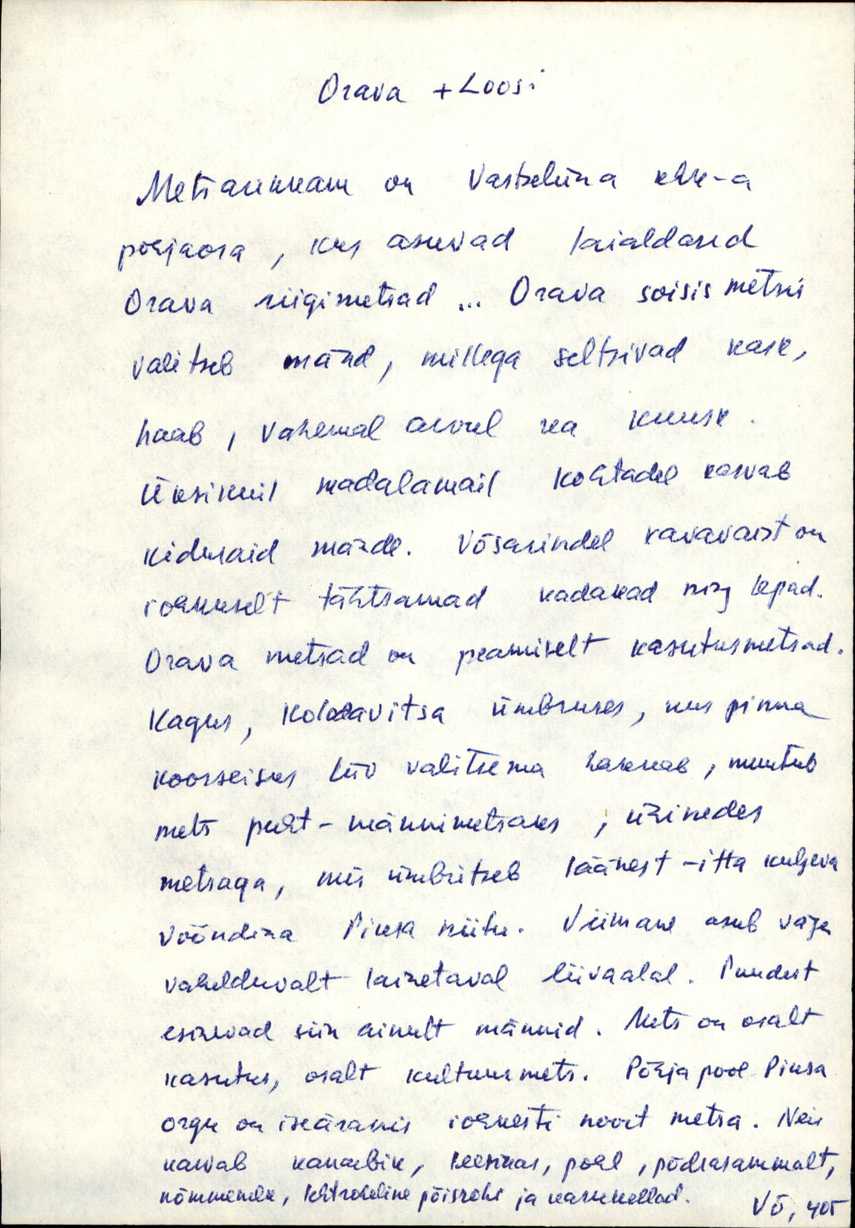 Orava + Loosi
Metsarikkam on Vastseliina khk-a
põhjaosa, kus asuvad laialdased
Orava riigimetsad ... Orava soisis metsis
valitseb mänd, millega seltsivad kask,
haab, vähemal arvul ka kuusk.
Üksikuil madalamail kohtadel kasvab
kiduraid mände. Võsarindel kasvavaist on
rohkuselt tähtsamad kadakad ning lepad.
Orava metsad on peamiselt kasutusmetsad.
Kagus, Kolodavitsa ümbruses, kus pinna
koosseisus liiv valitsema hakkab, muutub
mets puht-männimetsaks, ühinedes
metsaga, mis ümbritseb läänest-itta kulgeva
vööndina Piusa niitu. Viimane asub väga
vahelduvalt lainetaval liivaalal. Puudest
esinevad siin ainult männid. Mets on osalt
kasutus, osalt kultuurmets. Põhja pool Piusa
orgu on iseäranis rohkesti noort metsa. Neis
kasvab kanarbik, leesikas, pohl, põdrasammalt,
nõmmenelk, põisrohi ja karukellad.
Võ, 405